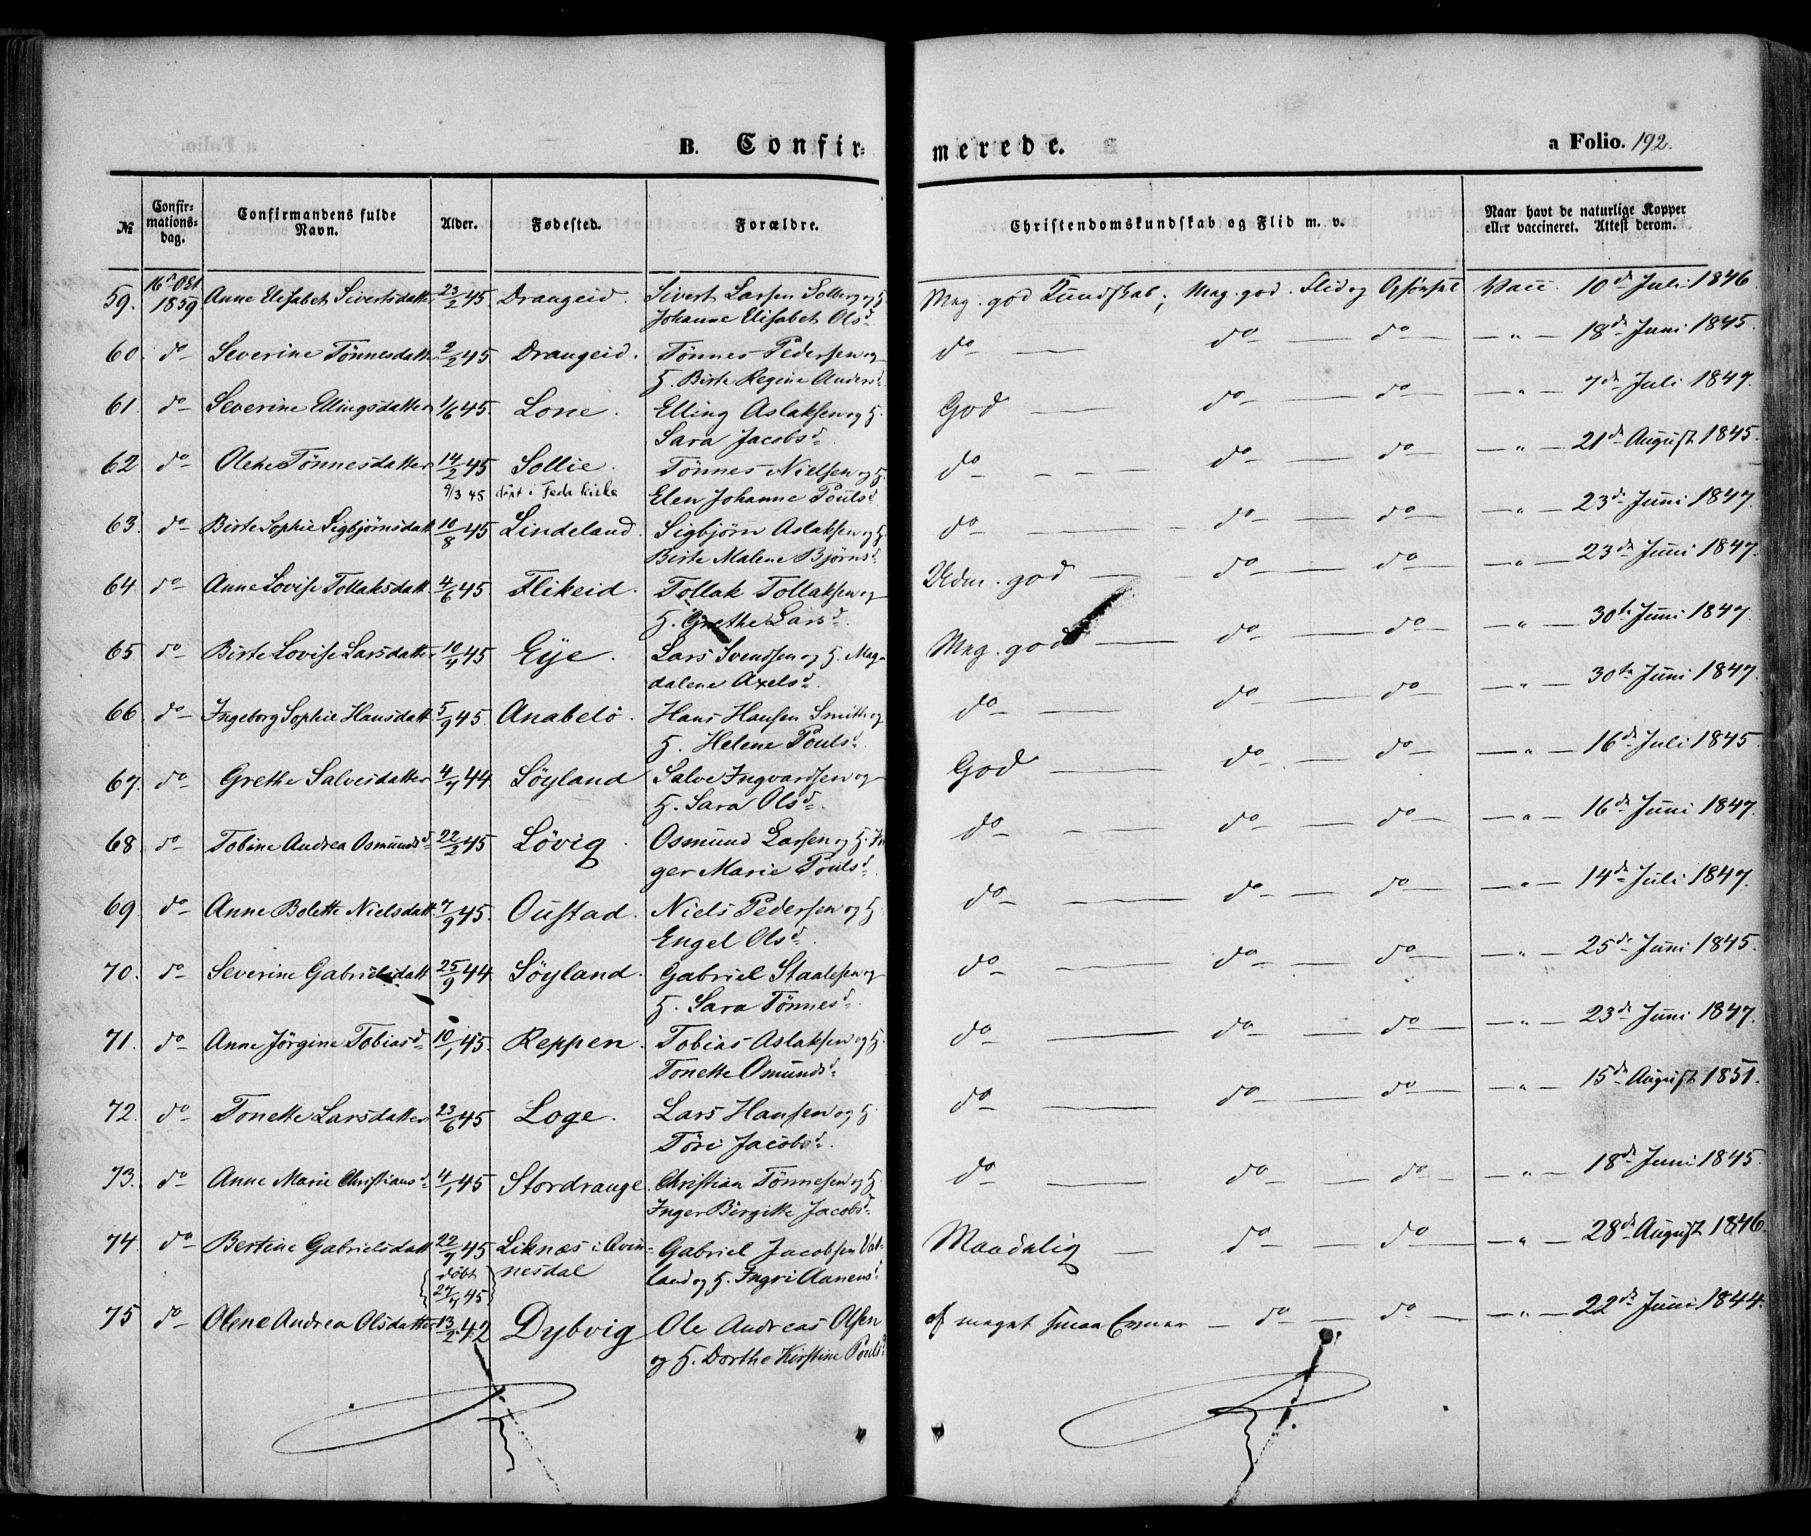 B. Confir-
merede.
a Folio. 192.
№
Confir-
mations-
dag.
Confirmandens fulde
Navn.
Alder.
Fødested.
Forældre.
Christendomskundskab og Flid m. v.
Naar havt de naturlige Kopper
eller vaccineret. Attest derom.
59. 16d 1859 Anne Elisabet Sivertsdatter 23/2 45 Drangeid. Sivert Larsen Solberg og H. Meg. god Kundskab; Meg. god Flid og Opførsel Vacc. 10de Juli 1846
Johanne Elisabet Olsd
60. do Severine Tønnesdatter 2/2 45 Drangeid. Tønnes Pedersen og do — do — do — „ — 18de Juni 1845.
H. Birte Regine Andersd
61. do Severine Ellingsdatter 1/6 45. Lone. Elling Aslaksen og H. God — do — do — „ — 7de Juli 1847.
Sara Jacobsd
62. do Olene Tønnesdatter 14/2 45 Sollie. Tønnes Nielsen og H. do — do — do — „ — 21de August 1845.
9/3 45 døpt i Feda kirke Elen Johanne Poulsd
63. do Birte Sophie Sigbjørnsdatt. 10/8 45 Lindeland. Sigbjørn Aslaksen og H. do — do — do — „ — 23de Juni 1847.
Birte Malene Bjørnsd
64. do Anne Lovise Tollaksdatt. 4/6 45. Flikeid. Tollak Tollaksen og Udm. god — do — do — „ — 23de Juni 1847.
H. Grethe Larsd
65. do Birte Lovise Larsdatter 10/4 45 Eye. Lars Svendsen og H. Mag- Meg. god — do — do — „ — 30te Juni 1847.
dalene Axelsd
66. do Ingeborg Sophie Hansdatt. 5/9 45. Anabelø. Hans Hansen Smith og do — do — do — „ — 30te Juni 1847.
H. Helene Poulsd
67. do Grethe Salvesdatter 4/4 44. Søyland Salve Ingvardsen og God — do — do — „ — 16de Juli 1845
H. Sara Olsd
68. do Tobine Andrea Osmundsd 22/2 45 Løvig. Osmund Larsen og H. In- do — do — do — „ — 16de Juni 1847.
ger Marie Poulsd
69. do Anne Bolette Nielsdatt. 7/9 45. Oustad. Niels Pedersen og H. do — do — do — „ — 14de Juli 1847.
Engel Olsd
70. do Severine Gabrielsdatt. 25/9 44. Søyland. Gabriel Staalesen og do — do — do — „ — 25de Juni 1845.
H. Sara Tønnesd
71. do Anne Jørgine Tobiasd 10/1 45. Reppen. Tobias Aslaksen og H. do — do — do — „ — 23de Juni 1847.
Tonette Osmundsd
72. do Tonette Larsdatter 23/6 45 Loge. Lars Hansen og H. do — do — do — „ — 15de August 1851.
Tøri Jacobsd
73. do Anne Marie Christiansd 4/1 45 Stordrange. Christian Tønnesen og H. do — do — do — „ — 18de Juni 1845.
Inger Birgitte Jacobsd
74. do Bertine Gabrielsdatt. 22/4 45 Liknæs i Qvin- Gabriel Jacobsen Vat- Maadelig — do — do — „ — 28de August 1846.
døbt 27/4 45 nesdal land og H. Ingri Aanensd
75 do Olene Andrea Olsdatter 13/2 42 Dybvig Ole Andreas Olsen af meget smaa Evner — do — do — „ — 22de Juni 1844.
og H. Dorthe Kirstine Poulsd